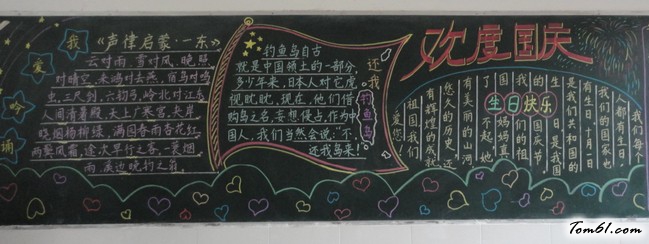 我
爱
吟
诵
《声律启蒙·一东》
云对雨,雪对风,晚照
对晴空,来鸿对去燕,宿鸟对鸣
虫,三尺剑,六钧弓,岭北对江东
人间清暑殿,天上广寒宫,夹岸
晓烟杨柳绿,满园春雨杏花红
两鬓风霜,途次早行之客,一蓑烟
雨,溪边晚钓之翁。
钓鱼岛自古
就是中国领土的一部分,
多少年来,日本人对它虎
视眈眈,现在,他们借
购岛之名,妄想侵占,作为中
国人,我们当然会说:“不,
还我岛来!”
还我
钓鱼岛
欢度国庆
我们每个
人都有生日,
我们的国家也
有生日,十月一日
是我们共和国的
生日,是我国
的国庆节。
我们的祖
国妈妈真
了不起,她
有美丽的山河,
悠久的历史,还
有辉煌的成就,
祖国我们
爱您!
生日快乐
Tom61.com